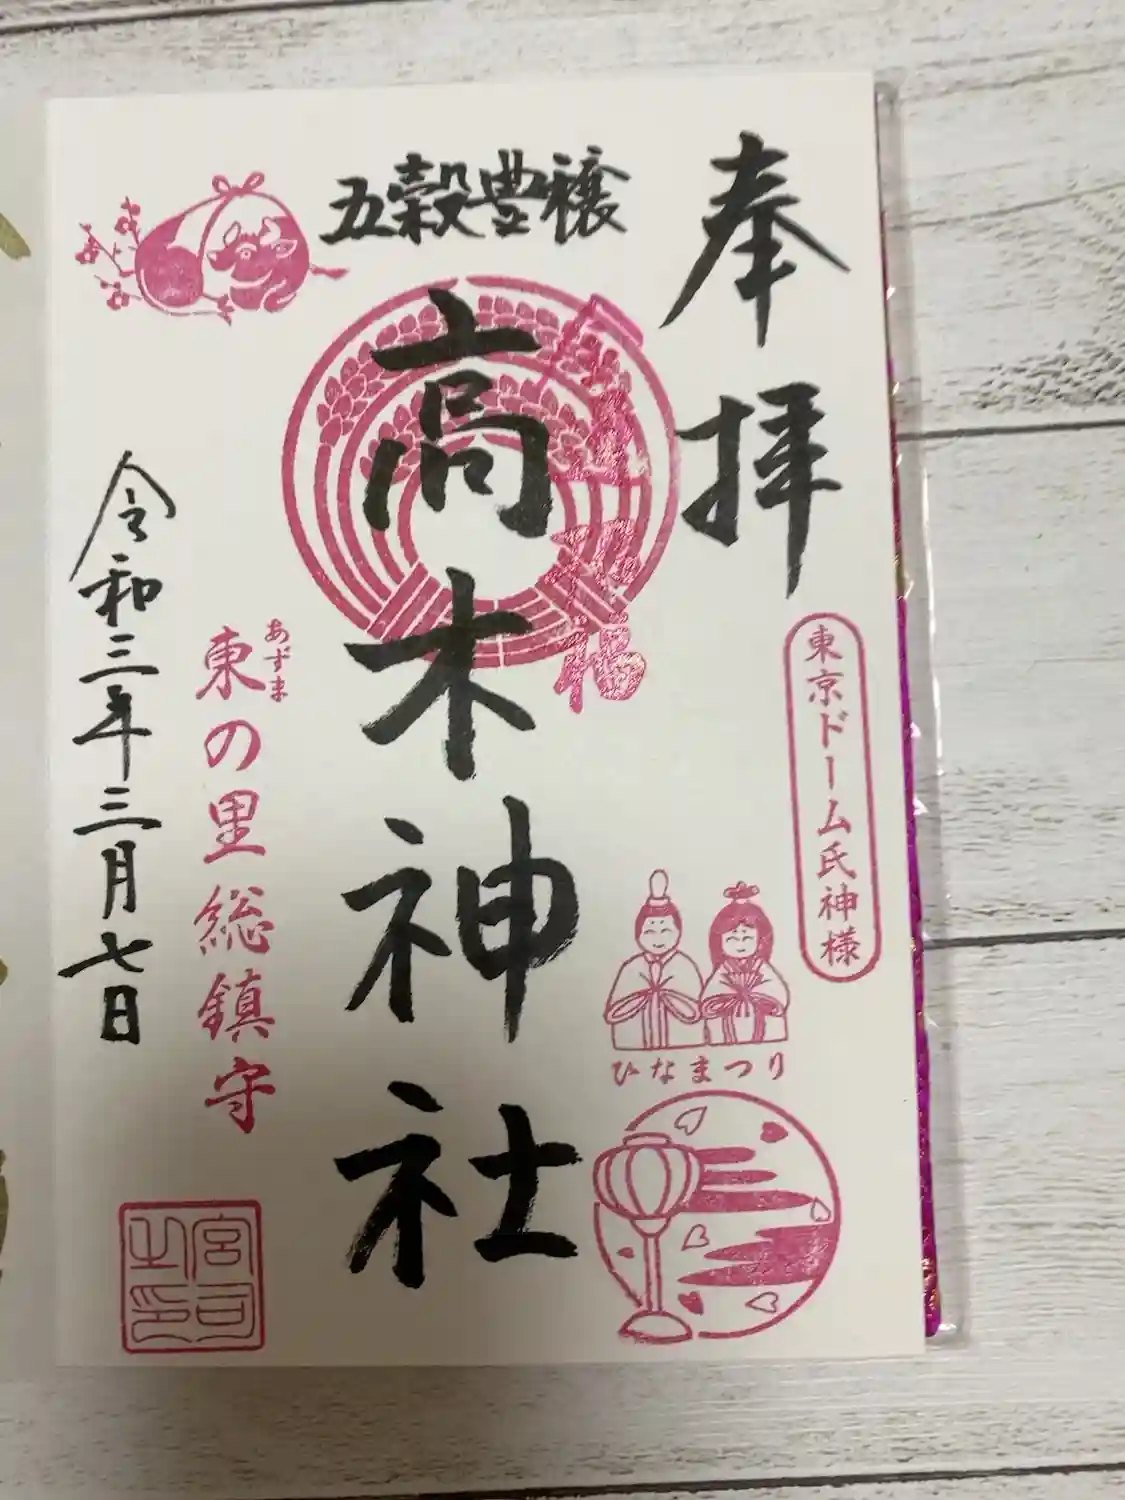 奉拝
東京ドーム氏神様
五穀豊穣
高木神社
ひなまつり
あずま
東の里総鎮守
令和三年三月七日
宮司
之印